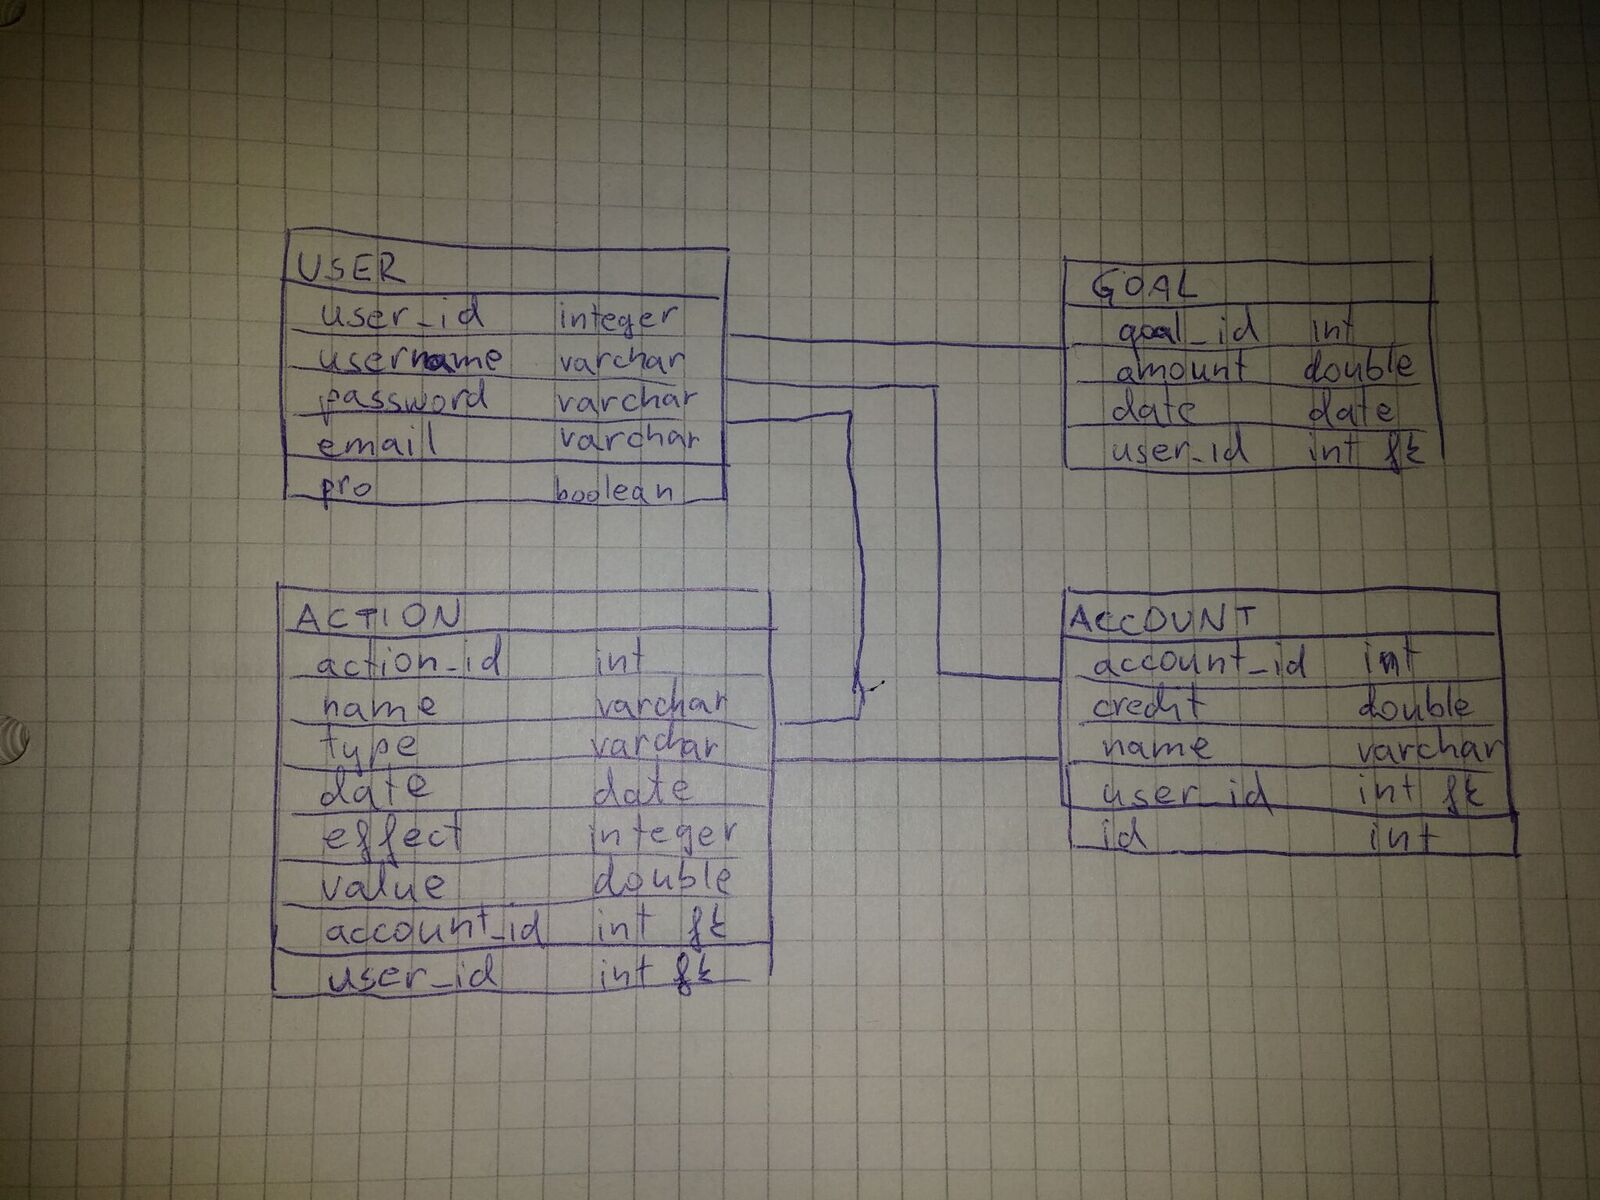 USER
user_id integer
username varchar
password varchar
email varchar
pro boolean
GOAL
goal_id int
amount double
date date
user_id int fk
ACTION
action_id int
name varchar
type varchar
date date
effect integer
value double
account_id int fk
user_id int fk
ACCOUNT
account_id int
credit double
name varchar
user_id int fk
id int